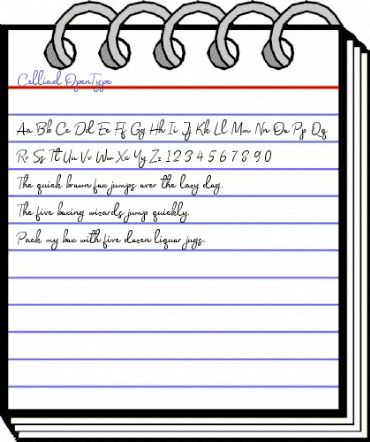 Celliad OpenType
Aa Bb Cc Dd Ee Ff Gg Hh Ii Jj Kk Ll Mm Nn Oo Pp Qq
Rr Ss Tt Uu Vv Ww Xx Yy Zz 1 2 3 4 5 6 7 8 9 0
The quick brown fox jumps over the lazy dog.
The five boxing wizards jump quickly.
Pack my box with five dozen liquor jugs.